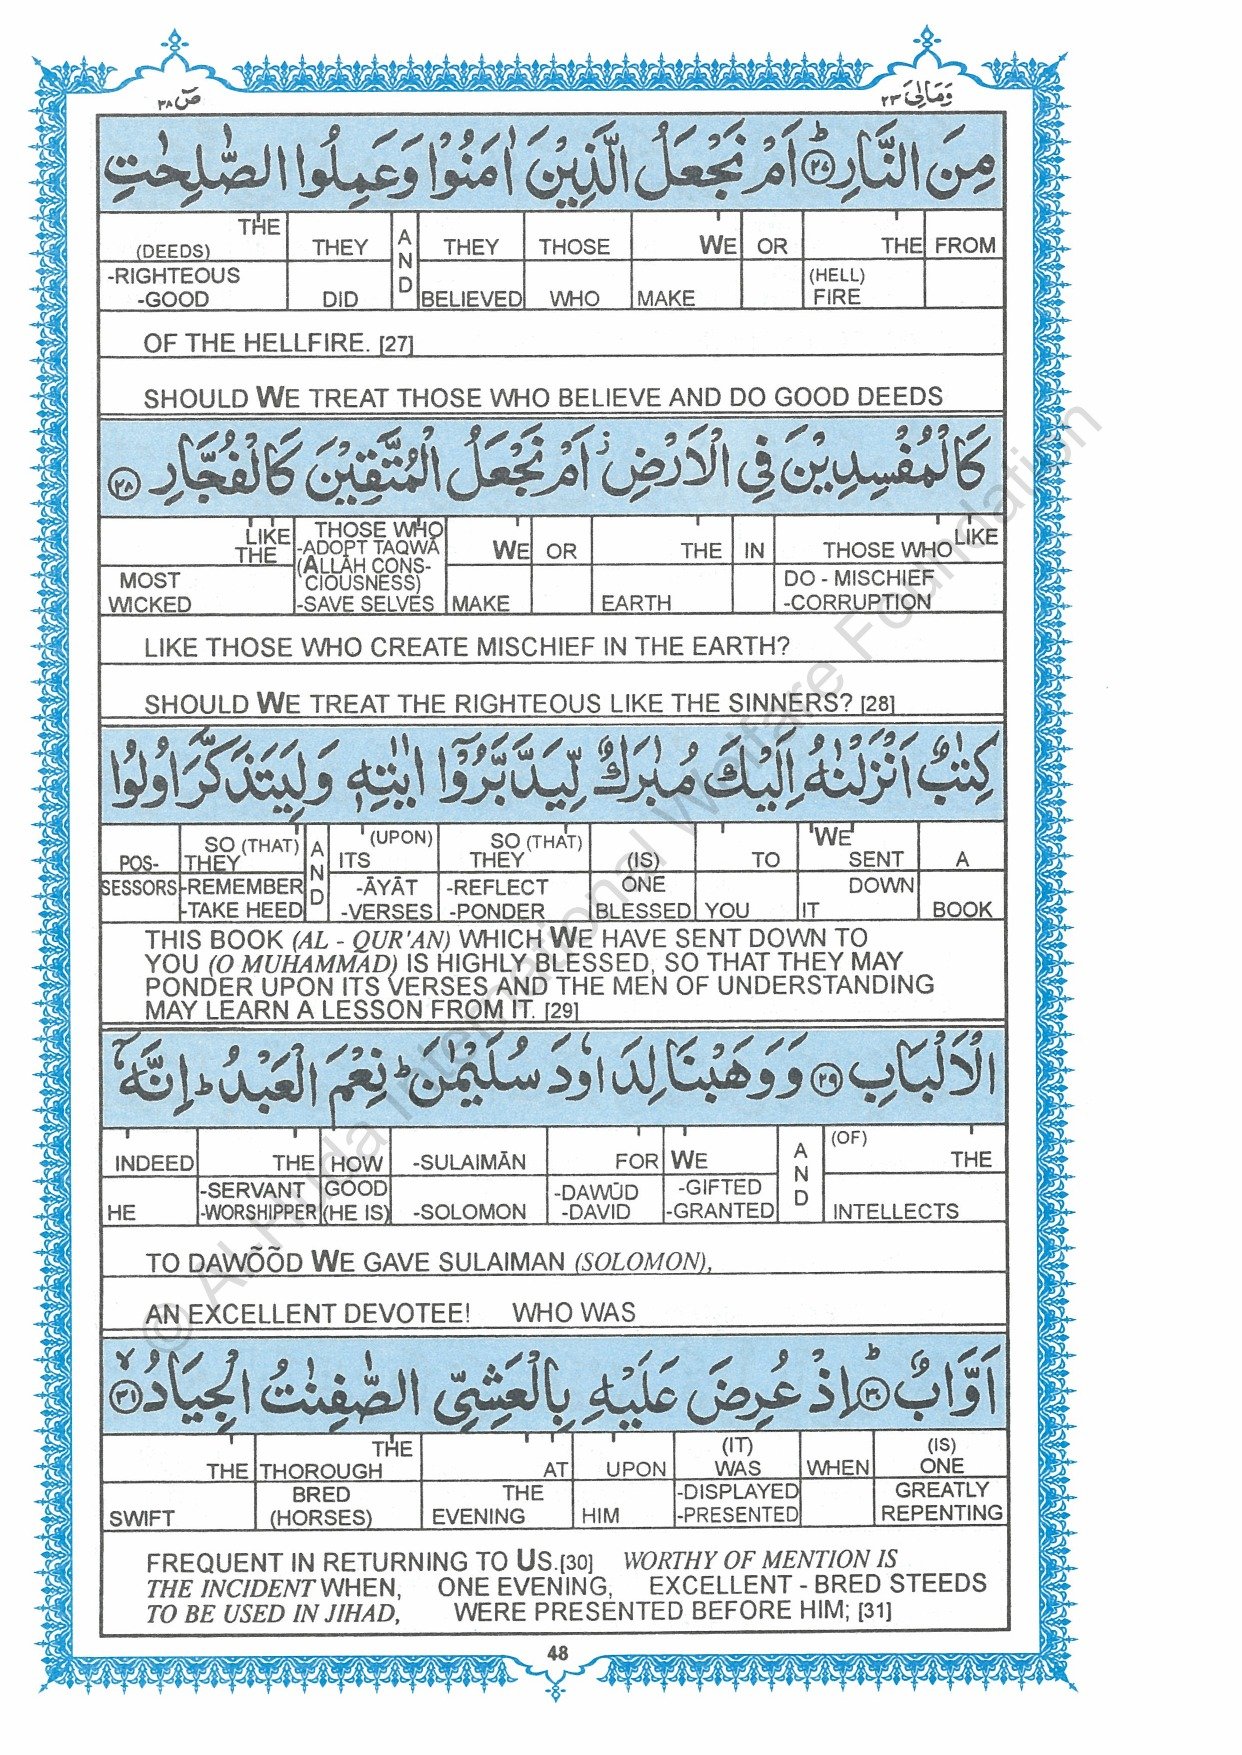 صٓ ٣٨
وَمَالِىَ ٢٣
مِنَ النَّارِ ؕ ﴿۲۷﴾ اَمْ نَجْعَلُ الَّذِيْنَ اٰمَنُوْا وَعَمِلُوا الصّٰلِحٰتِ
THE THEY A N D THEY THOSE WE OR THE FROM
(DEEDS)
-RIGHTEOUS (HELL)
-GOOD DID BELIEVED WHO MAKE FIRE
OF THE HELLFIRE. [27]
SHOULD WE TREAT THOSE WHO BELIEVE AND DO GOOD DEEDS
كَالْمُفْسِدِيْنَ فِي الْاَرْضِ ۫ اَمْ نَجْعَلُ الْمُتَّقِيْنَ كَالْفُجَّارِ ﴿۲۸﴾
LIKE THOSE WHO LIKE
THE -ADOPT TAQWĀ WE OR THE IN THOSE WHO
(ALLĀH CONS-
MOST CIOUSNESS) DO - MISCHIEF
WICKED -SAVE SELVES MAKE EARTH -CORRUPTION
LIKE THOSE WHO CREATE MISCHIEF IN THE EARTH?
SHOULD WE TREAT THE RIGHTEOUS LIKE THE SINNERS? [28]
كِتٰبٌ اَنْزَلْنٰهُ اِلَيْكَ مُبٰرَكٌ لِّيَدَّبَّرُوْۤا اٰيٰتِهٖ وَلِيَتَذَكَّرَ اُولُوا
SO (THAT) A N D (UPON) SO (THAT) WE
POS- THEY ITS THEY (IS) TO SENT A
SESSORS -REMEMBER -ĀYĀT -REFLECT ONE DOWN
-TAKE HEED -VERSES -PONDER BLESSED YOU IT BOOK
THIS BOOK (AL - QUR'AN) WHICH WE HAVE SENT DOWN TO
YOU (O MUHAMMĀD) IS HIGHLY BLESSED, SO THAT THEY MAY
PONDER UPON ITS VERSES AND THE MEN OF UNDERSTANDING
MAY LEARN A LESSON FROM IT. [29]
الْاَلْبَابِ ﴿۲۹﴾ وَوَهَبْنَا لِدَاوٗدَ سُلَيْمٰنَ ؕ نِعْمَ الْعَبْدُ ؕ اِنَّهٗۤ
A N D (OF)
INDEED THE HOW -SULAIMĀN FOR WE THE
-SERVANT GOOD -DAWŪD -GIFTED
HE -WORSHIPPER (HE IS) -SOLOMON -DAVID -GRANTED INTELLECTS
TO DAWÕÕD WE GAVE SULAIMAN (SOLOMON),
AN EXCELLENT DEVOTEE! WHO WAS
اَوَّابٌ ؕ ﴿۳۰﴾ اِذْ عُرِضَ عَلَيْهِ بِالْعَشِيِّ الصّٰفِنٰتُ الْجِيَادُ ۙ ﴿۳۱﴾
THE (IT) (IS)
THE THOROUGH AT UPON WAS WHEN ONE
BRED THE -DISPLAYED GREATLY
SWIFT (HORSES) EVENING HIM -PRESENTED REPENTING
FREQUENT IN RETURNING TO US.[30] WORTHY OF MENTION IS
THE INCIDENT WHEN, ONE EVENING, EXCELLENT - BRED STEEDS
TO BE USED IN JIHAD, WERE PRESENTED BEFORE HIM; [31]
48
© Al-Huda International Welfare Foundation